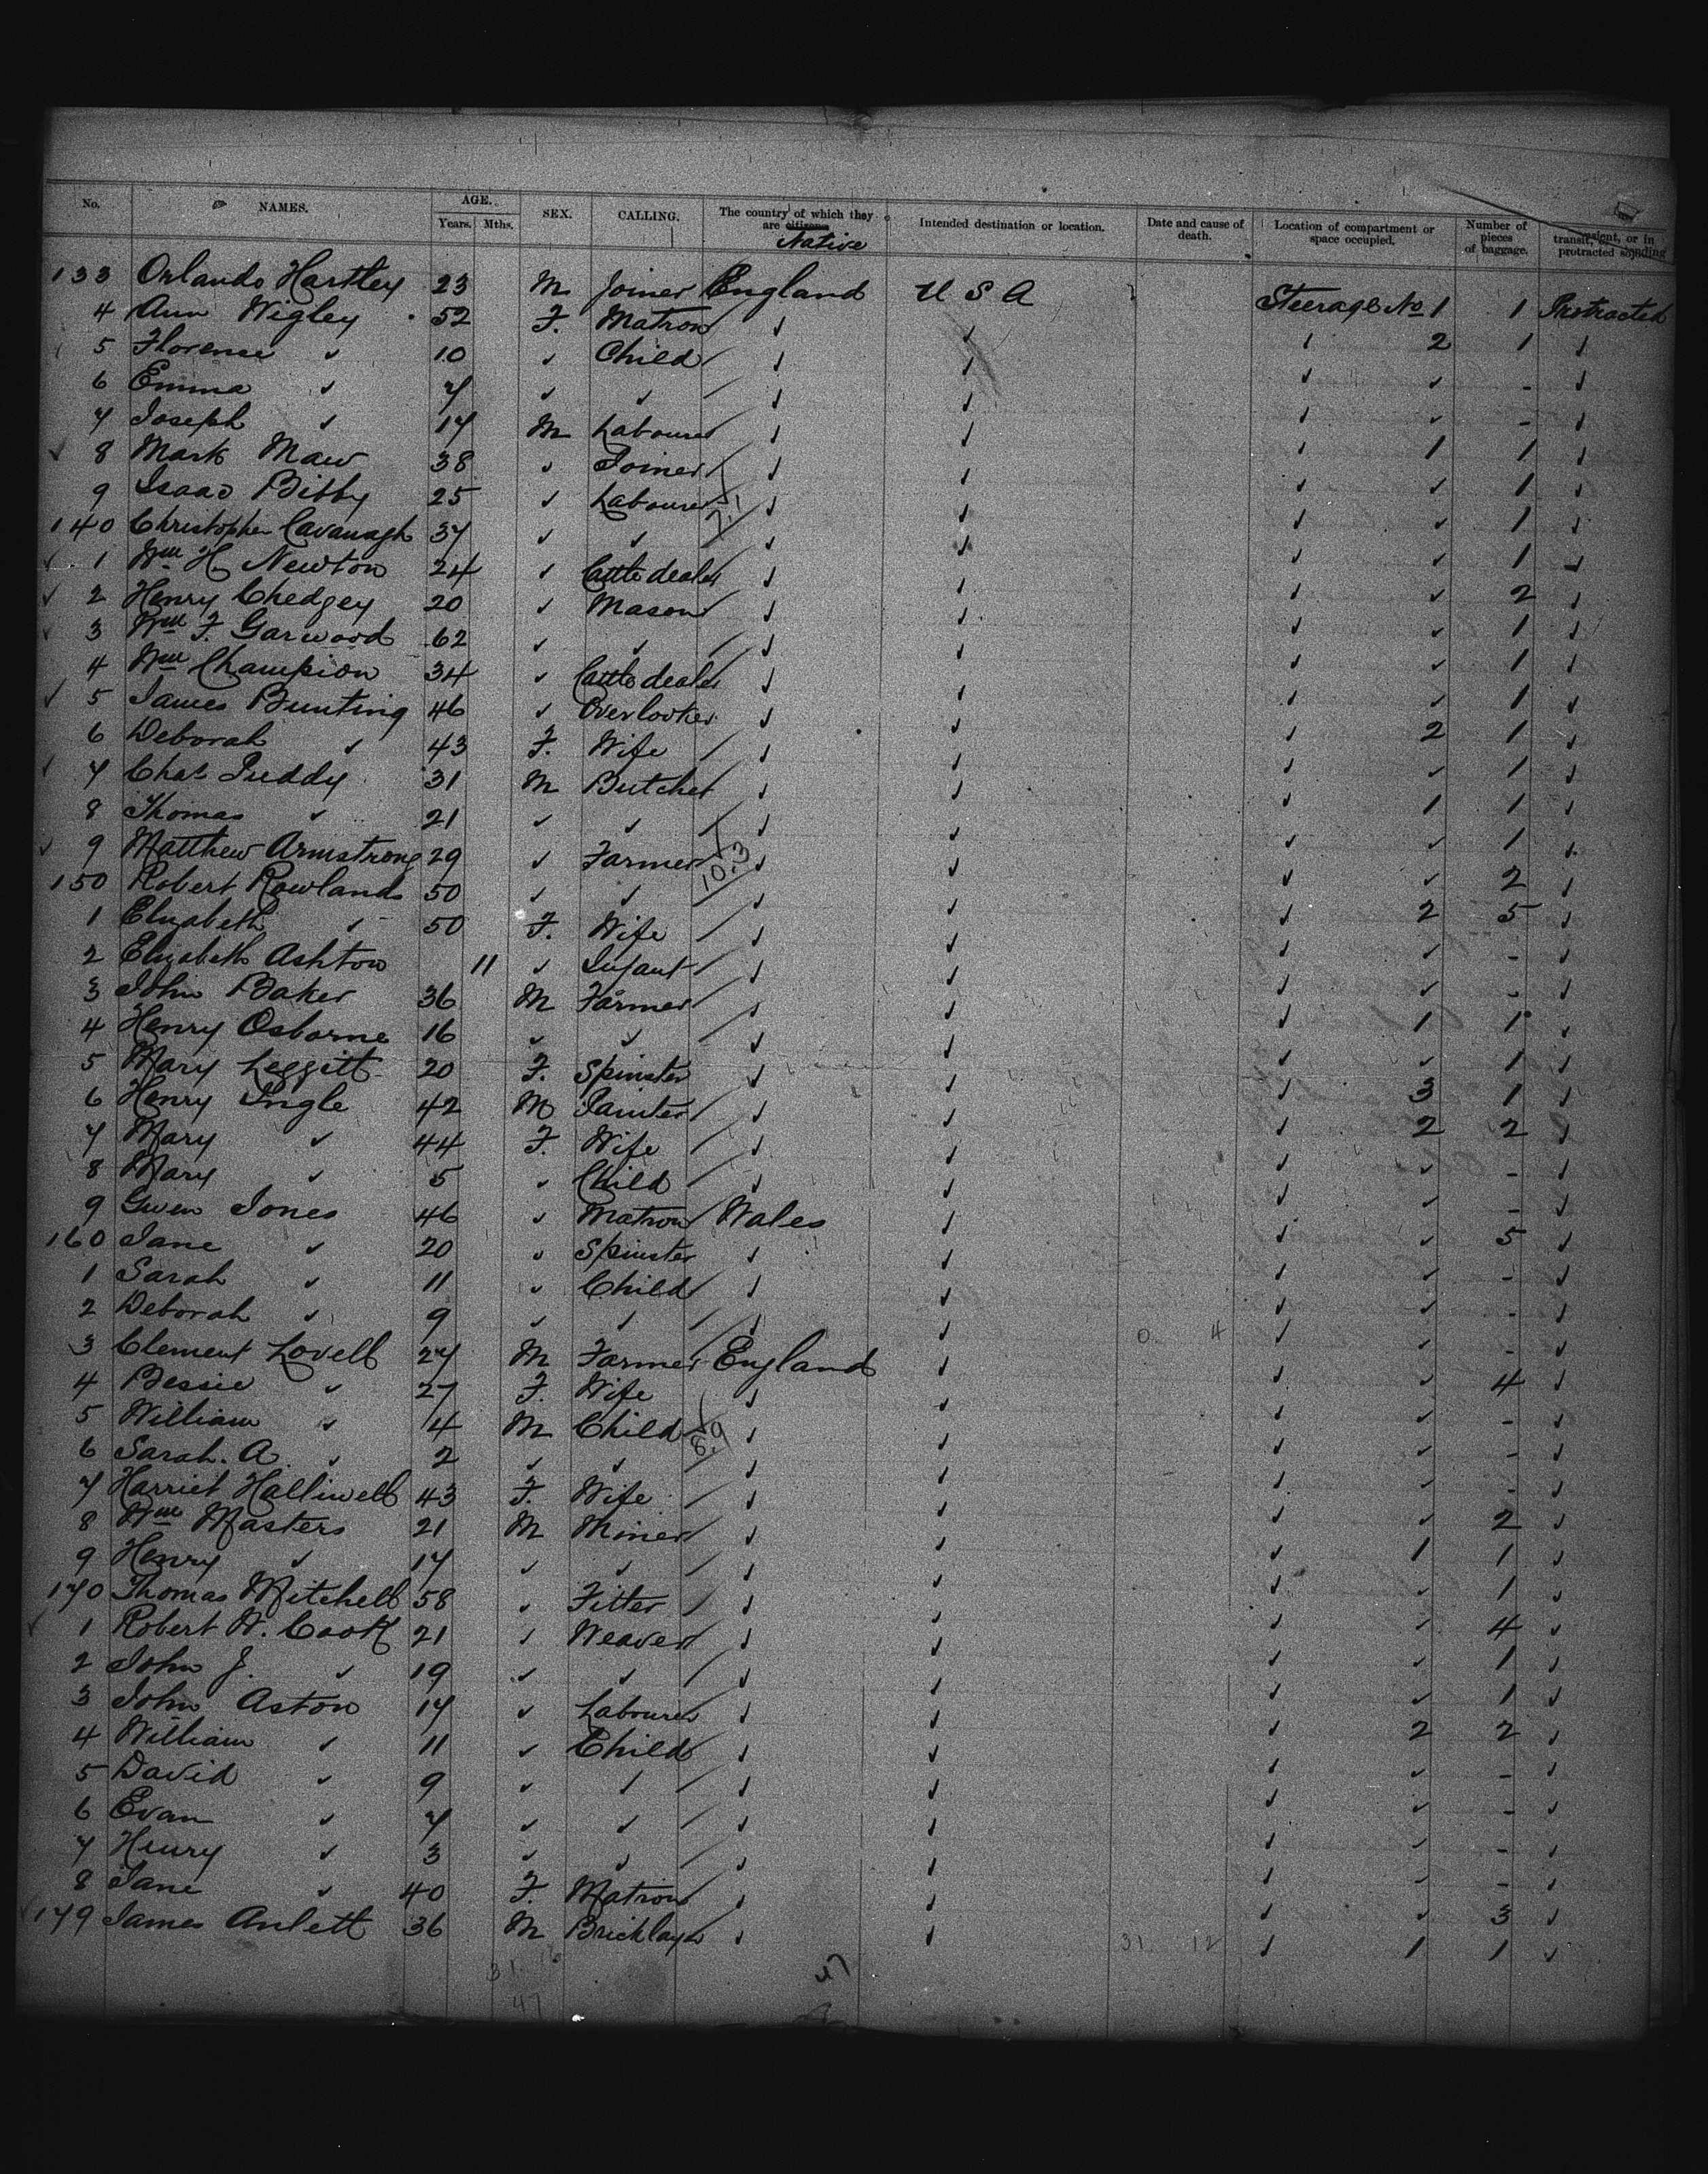 No. NAMES. AGE. Years. Mths. SEX. CALLING. The country of which they are citizens Native Intended destination or location. Date and cause of death. Location of compartment or space occupied. Number of pieces of baggage. transit, or in protracted sojourn
133 Orlando Hartley 23 M Joiner England U S A Steerage No 1 1 Protracted
4 Ann Wigley 52 F. Matron ✓ ✓ ✓ 2 1 ✓
5 Florence ✓ 10 ✓ Child ✓ ✓ ✓ ✓ - ✓
6 Emma ✓ 7 ✓ ✓ ✓ ✓ ✓ ✓ - ✓
7 Joseph ✓ 17 M Labourer ✓ ✓ ✓ 1 1 ✓
8 Mark Maw 38 ✓ Joiner ✓ ✓ ✓ ✓ 1 ✓
9 Isaac Bibby 25 ✓ Labourer ✓ ✓ ✓ ✓ 1 ✓
140 Christopher Cavanagh 37 ✓ ✓ ✓ ✓ ✓ ✓ 1 ✓
1 Wm H. Newton 24 ✓ Cattle dealer ✓ ✓ ✓ ✓ 2 ✓
2 Henry Chedgey 20 ✓ Mason ✓ ✓ ✓ ✓ 1 ✓
3 Wm F. Garwood 62 ✓ ✓ ✓ ✓ ✓ ✓ 1 ✓
4 Wm Champion 34 ✓ Cattle dealer ✓ ✓ ✓ ✓ 1 ✓
5 James Bunting 46 ✓ Overlooker ✓ ✓ ✓ 2 1 ✓
6 Deborah ✓ 43 F. Wife ✓ ✓ ✓ ✓ 1 ✓
7 Chas Puddy 31 M Butcher ✓ ✓ ✓ 1 1 ✓
8 Thomas ✓ 21 ✓ ✓ ✓ ✓ ✓ ✓ 1 ✓
9 Matthew Armstrong 29 ✓ Farmer 10.3 ✓ ✓ ✓ ✓ 2 ✓
150 Robert Rowlands 50 ✓ ✓ ✓ ✓ ✓ 2 5 ✓
1 Elizabeth ✓ 50 F. Wife ✓ ✓ ✓ ✓ - ✓
2 Elizabeth Ashton 11 ✓ Infant ✓ ✓ ✓ ✓ - ✓
3 John Baker 36 M Farmer ✓ ✓ ✓ 1 1 ✓
4 Henry Osborne 16 ✓ ✓ ✓ ✓ ✓ ✓ 1 ✓
5 Mary Leggitt 20 F. Spinster ✓ ✓ ✓ 3 1 ✓
6 Henry Ingle 42 M Painter ✓ ✓ ✓ 2 2 ✓
7 Mary ✓ 44 F. Wife ✓ ✓ ✓ ✓ - ✓
8 Mary ✓ 5 ✓ Child ✓ ✓ ✓ ✓ - ✓
9 Gwen Jones 46 ✓ Matron Wales ✓ ✓ ✓ 5 ✓
160 Jane ✓ 20 ✓ Spinster ✓ ✓ ✓ ✓ - ✓
1 Sarah ✓ 11 ✓ Child ✓ ✓ ✓ ✓ - ✓
2 Deborah ✓ 9 ✓ ✓ ✓ ✓ ✓ ✓ - ✓
3 Clement Lovell 27 M Farmer England ✓ ✓ ✓ 4 ✓
4 Bessie ✓ 27 F. Wife ✓ ✓ ✓ ✓ - ✓
5 William ✓ 4 M Child 8.9 ✓ ✓ ✓ ✓ - ✓
6 Sarah. A. ✓ 2 ✓ ✓ ✓ ✓ ✓ ✓ - ✓
7 Harriet Halliwell 43 F. Wife ✓ ✓ ✓ ✓ 2 ✓
8 Wm Masters 21 M Miner ✓ ✓ ✓ 1 1 ✓
9 Henry ✓ 17 ✓ ✓ ✓ ✓ ✓ ✓ 1 ✓
170 Thomas Mitchell 58 ✓ Fitter ✓ ✓ ✓ ✓ 4 ✓
1 Robert W. Cook 21 ✓ Weaver ✓ ✓ ✓ ✓ 1 ✓
2 John J. ✓ 19 ✓ ✓ ✓ ✓ ✓ ✓ 1 ✓
3 John Aston 17 ✓ Labourer ✓ ✓ ✓ 2 2 ✓
4 William ✓ 11 ✓ Child ✓ ✓ ✓ ✓ - ✓
5 David ✓ 9 ✓ ✓ ✓ ✓ ✓ ✓ - ✓
6 Evan ✓ 7 ✓ ✓ ✓ ✓ ✓ ✓ - ✓
7 Henry ✓ 3 ✓ ✓ ✓ ✓ ✓ ✓ - ✓
8 Jane ✓ 40 F. Matron ✓ ✓ ✓ ✓ 3 ✓
179 James Anlett 36 M Bricklayer ✓ ✓ 31 12 ✓ 1 1 ✓
47